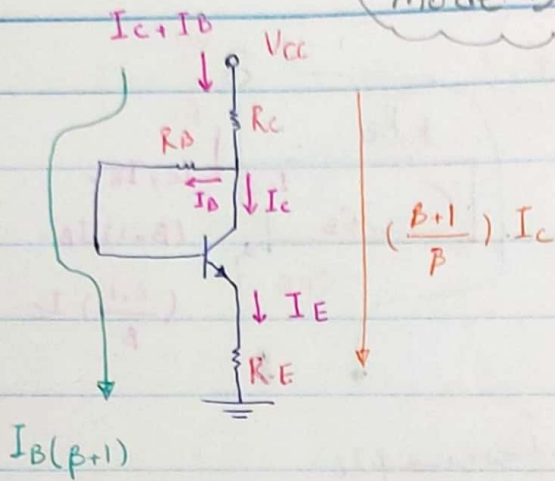 MODE
IC + IB
VCC
RC
RB
IB
IC
(β+1/β) . IC
IE
R.E
IB(β+1)